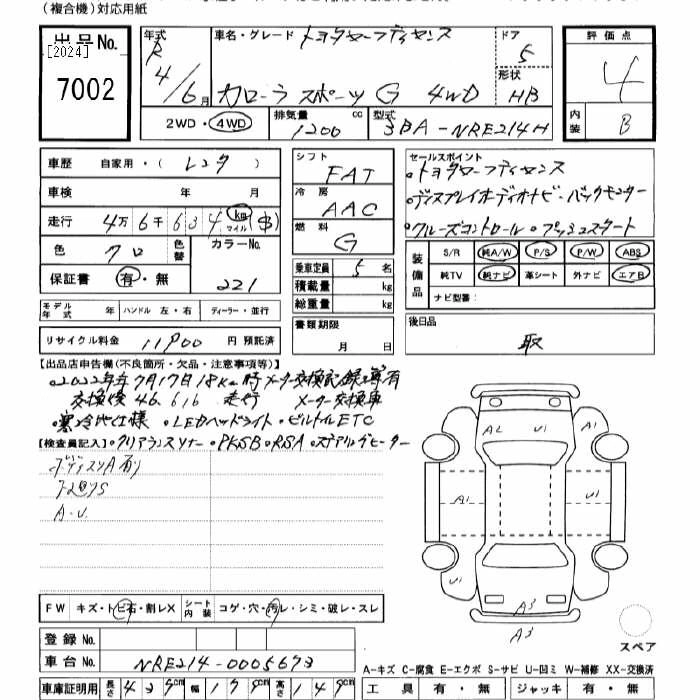 (複合機)対応用紙
出品No.
[2024]
7002
年式
R
4/6月
車名・グレード トヨタセーフティセンス
カローラ スポーツ G 4WD
ドア
5
形状
HB
2WD・4WD
排気量 cc
1200
型式
3BA-NRE214H
評価点
4
内装
B
車歴 自家用・(レンタ)
車検 年 月
走行 4万6千634 km マイル ($)
色 クロ
色替
カラーNo.
221
保証書 有・無
シフト
FAT
冷房
AAC
燃料
G
乗車定員 5名
積載量 kg
総重量 kg
書類期限
月 日
セールスポイント
・トヨタセーフティセンス
・ディスプレイオーディオナビ・バックモニター
・クルーズコントロール・プッシュスタート
装備品
S/R 純A/W P/S P/W ABS
純TV 純ナビ 革シート 外ナビ エアB
ナビ型番:
モデル年式 年 ハンドル 左・右 ディーラー・並行
リサイクル料金 11900 円 預託済
後日品
取
【出品店申告欄(不良箇所・欠品・注意事項等)】
・2022年7月17日18km時メーター交換記録簿有
交換後46,616 走行 メーター交換車
・寒冷地仕様 ・LEDヘッドライト ・ビルトインETC
【検査員記入】・クリアランスソナー ・PKSB・RSA ・ステアリングヒーター
A・U
A2 U1 A1
A1 U1
U1
A3
A3
FW キズ・トビ石・割レX シート内装 コゲ・穴・汚レ・シミ・破レ・スレ
登録No.
車台No. NRE214-0005673
車庫証明用 長さ 437cm 幅 179cm 高さ 149cm
スペア
A-キズ C-腐食 E-エクボ S-サビ U-凹ミ W-補修 XX-交換済
工具 有・無 ジャッキ 有・無